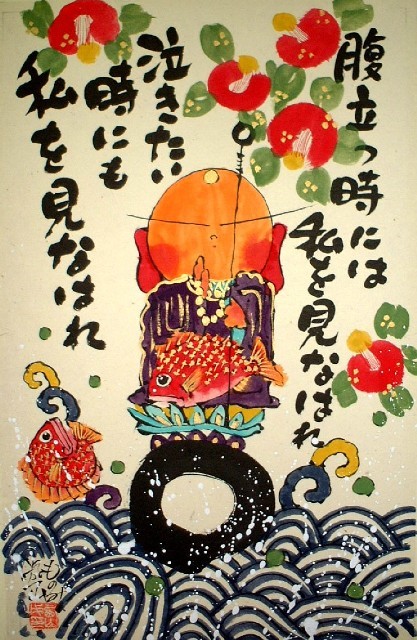 腹立つ時には
私を見なはれ
泣きたい
時にも
私を見なはれ